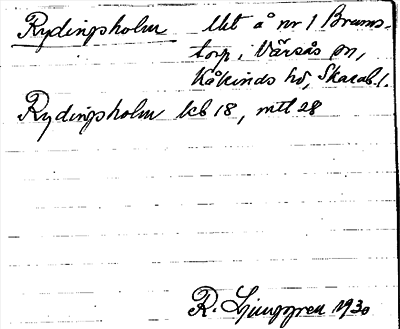 Rydingsholm Ut å nr 1 Brums-
torp, Värsås sn,
Kåkinds hd, Skarab. l.
Rydingsholm kb 18, mtl 28
R. Ljunggren 1930